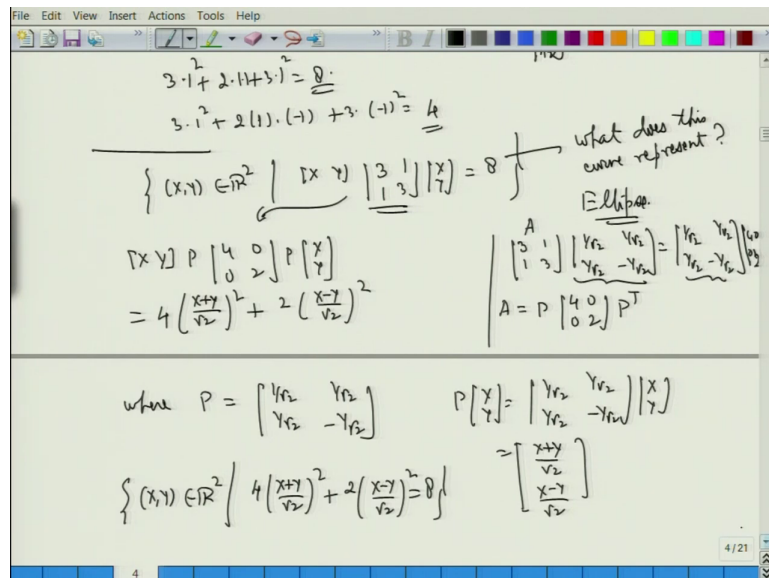 File Edit View Insert Actions Tools Help
3·1² + 2·1·1 + 3·1² = 8.
3·1² + 2(1)·(-1) + 3·(-1)² = 4
{ (x,y) ∈ ℝ² | [x y] [3 1; 1 3] [x; y] = 8 }
what does this
curve represent?
Ellipse.
[x y] P [4 0; 0 2] P [x; y]
= 4 ((x+y)/√2)² + 2 ((x-y)/√2)²
A
[3 1; 1 3] [1/√2 1/√2; 1/√2 -1/√2] = [1/√2 1/√2; 1/√2 -1/√2] [4 0; 0 2]
A = P [4 0; 0 2] Pᵀ
where P = [1/√2 1/√2; 1/√2 -1/√2]
P [x; y] = [1/√2 1/√2; 1/√2 -1/√2] [x; y]
= [(x+y)/√2; (x-y)/√2]
{ (x,y) ∈ ℝ² | 4 ((x+y)/√2)² + 2 ((x-y)/√2)² = 8 }
4/21
4